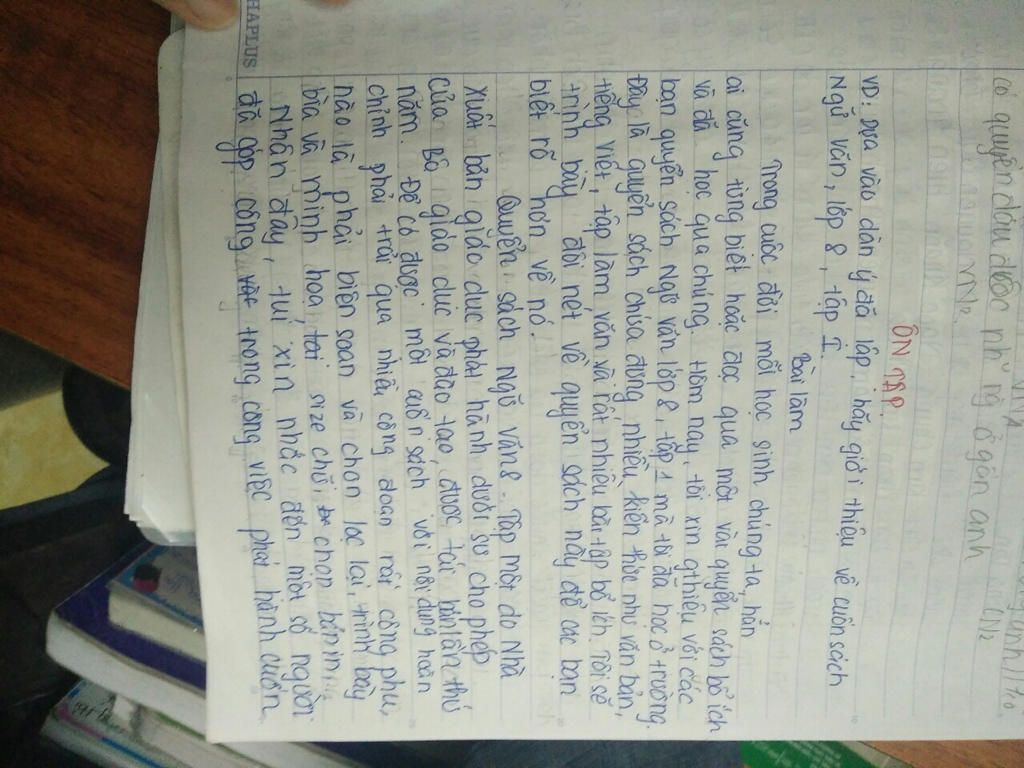 có quyền dấu được nh ng ở gần anh
ÔN TẬP
VD: Dựa vào dàn ý đã lập. hãy giới thiệu về cuốn sách
Ngữ văn, lớp 8, tập I.
Bài làm
Trong cuộc đời mỗi học sinh chúng ta, hẳn
ai cũng từng biết hoặc đọc qua một vài quyển sách bổ ích
và đã học qua chúng. Hôm nay, tôi xim gthiệu với các
bạn quyển sách Ngữ văn lớp 8, tập 1 mà tôi đã học ở trường.
Đây là quyển sách chứa đựng nhiều kiến thức như văn bản,
tiếng việt, tập làm văn và rất nhiều bài tập bổ ích. Tôi sẽ
trình bày đôi nét về quyển sách này để các bạn
biết rõ hơn về nó.
Quyển sách ngữ văn 8 - Tập một do Nhà
xuất bản giáo dục phát hành dưới sự cho phép
của Bộ giáo dục và đào tạo, được tái bản lần thứ
năm. Để có được một cuốn sách với nội dung hoàn
chỉnh phải trải qua nhiều công đoạn rất công phu,
nào là phải biên soạn và chọn lọc lại, trình bày
bìa và minh hoạ, tới size chữ, chọn bản in,
Nhân đây, tui xin nhắc đến một số người
đã góp công trong công việc phát hành cuốn
HAPLUS